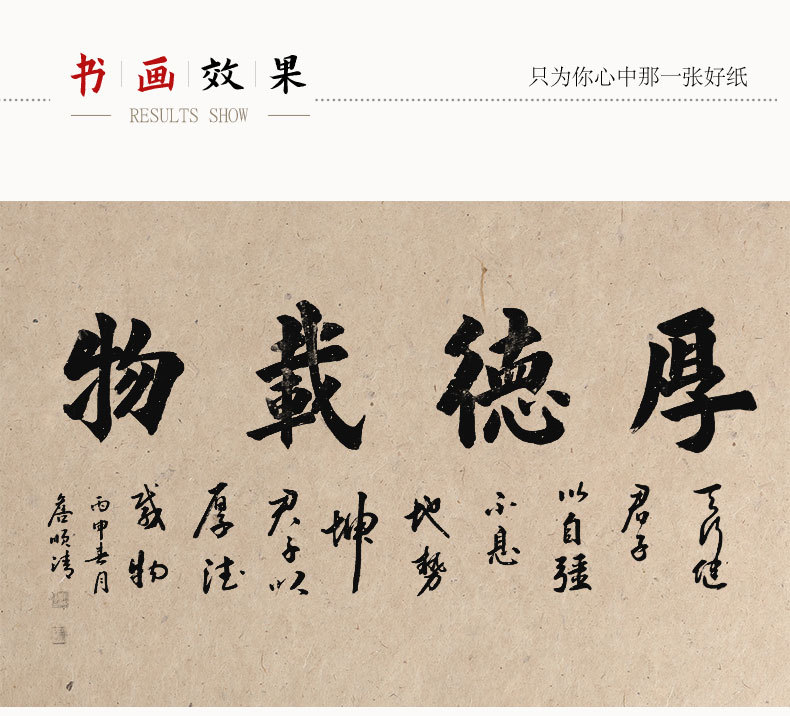 书画效果
RESULTS SHOW
只为你心中那一张好纸
厚德載物
天行健
君子
以自疆
不息
地勢
坤
君子以
厚德
载物
丙申春月
詹順清